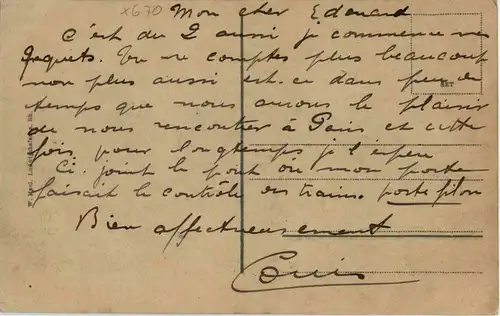 x670
Mon cher Edouard
C'est du 2 aussi je commence mes
paquets. Tu ne comptes plus beaucoup
non plus aussi est-ce dans peu de
temps que nous aurons le plaisir
de nous rencontrer à Paris et cette
fois pour longtemps je l'espère
Ci. joint le pont où mon poste
faisait le contrôle des trains. poste filon
Bien affectueusement
Louis